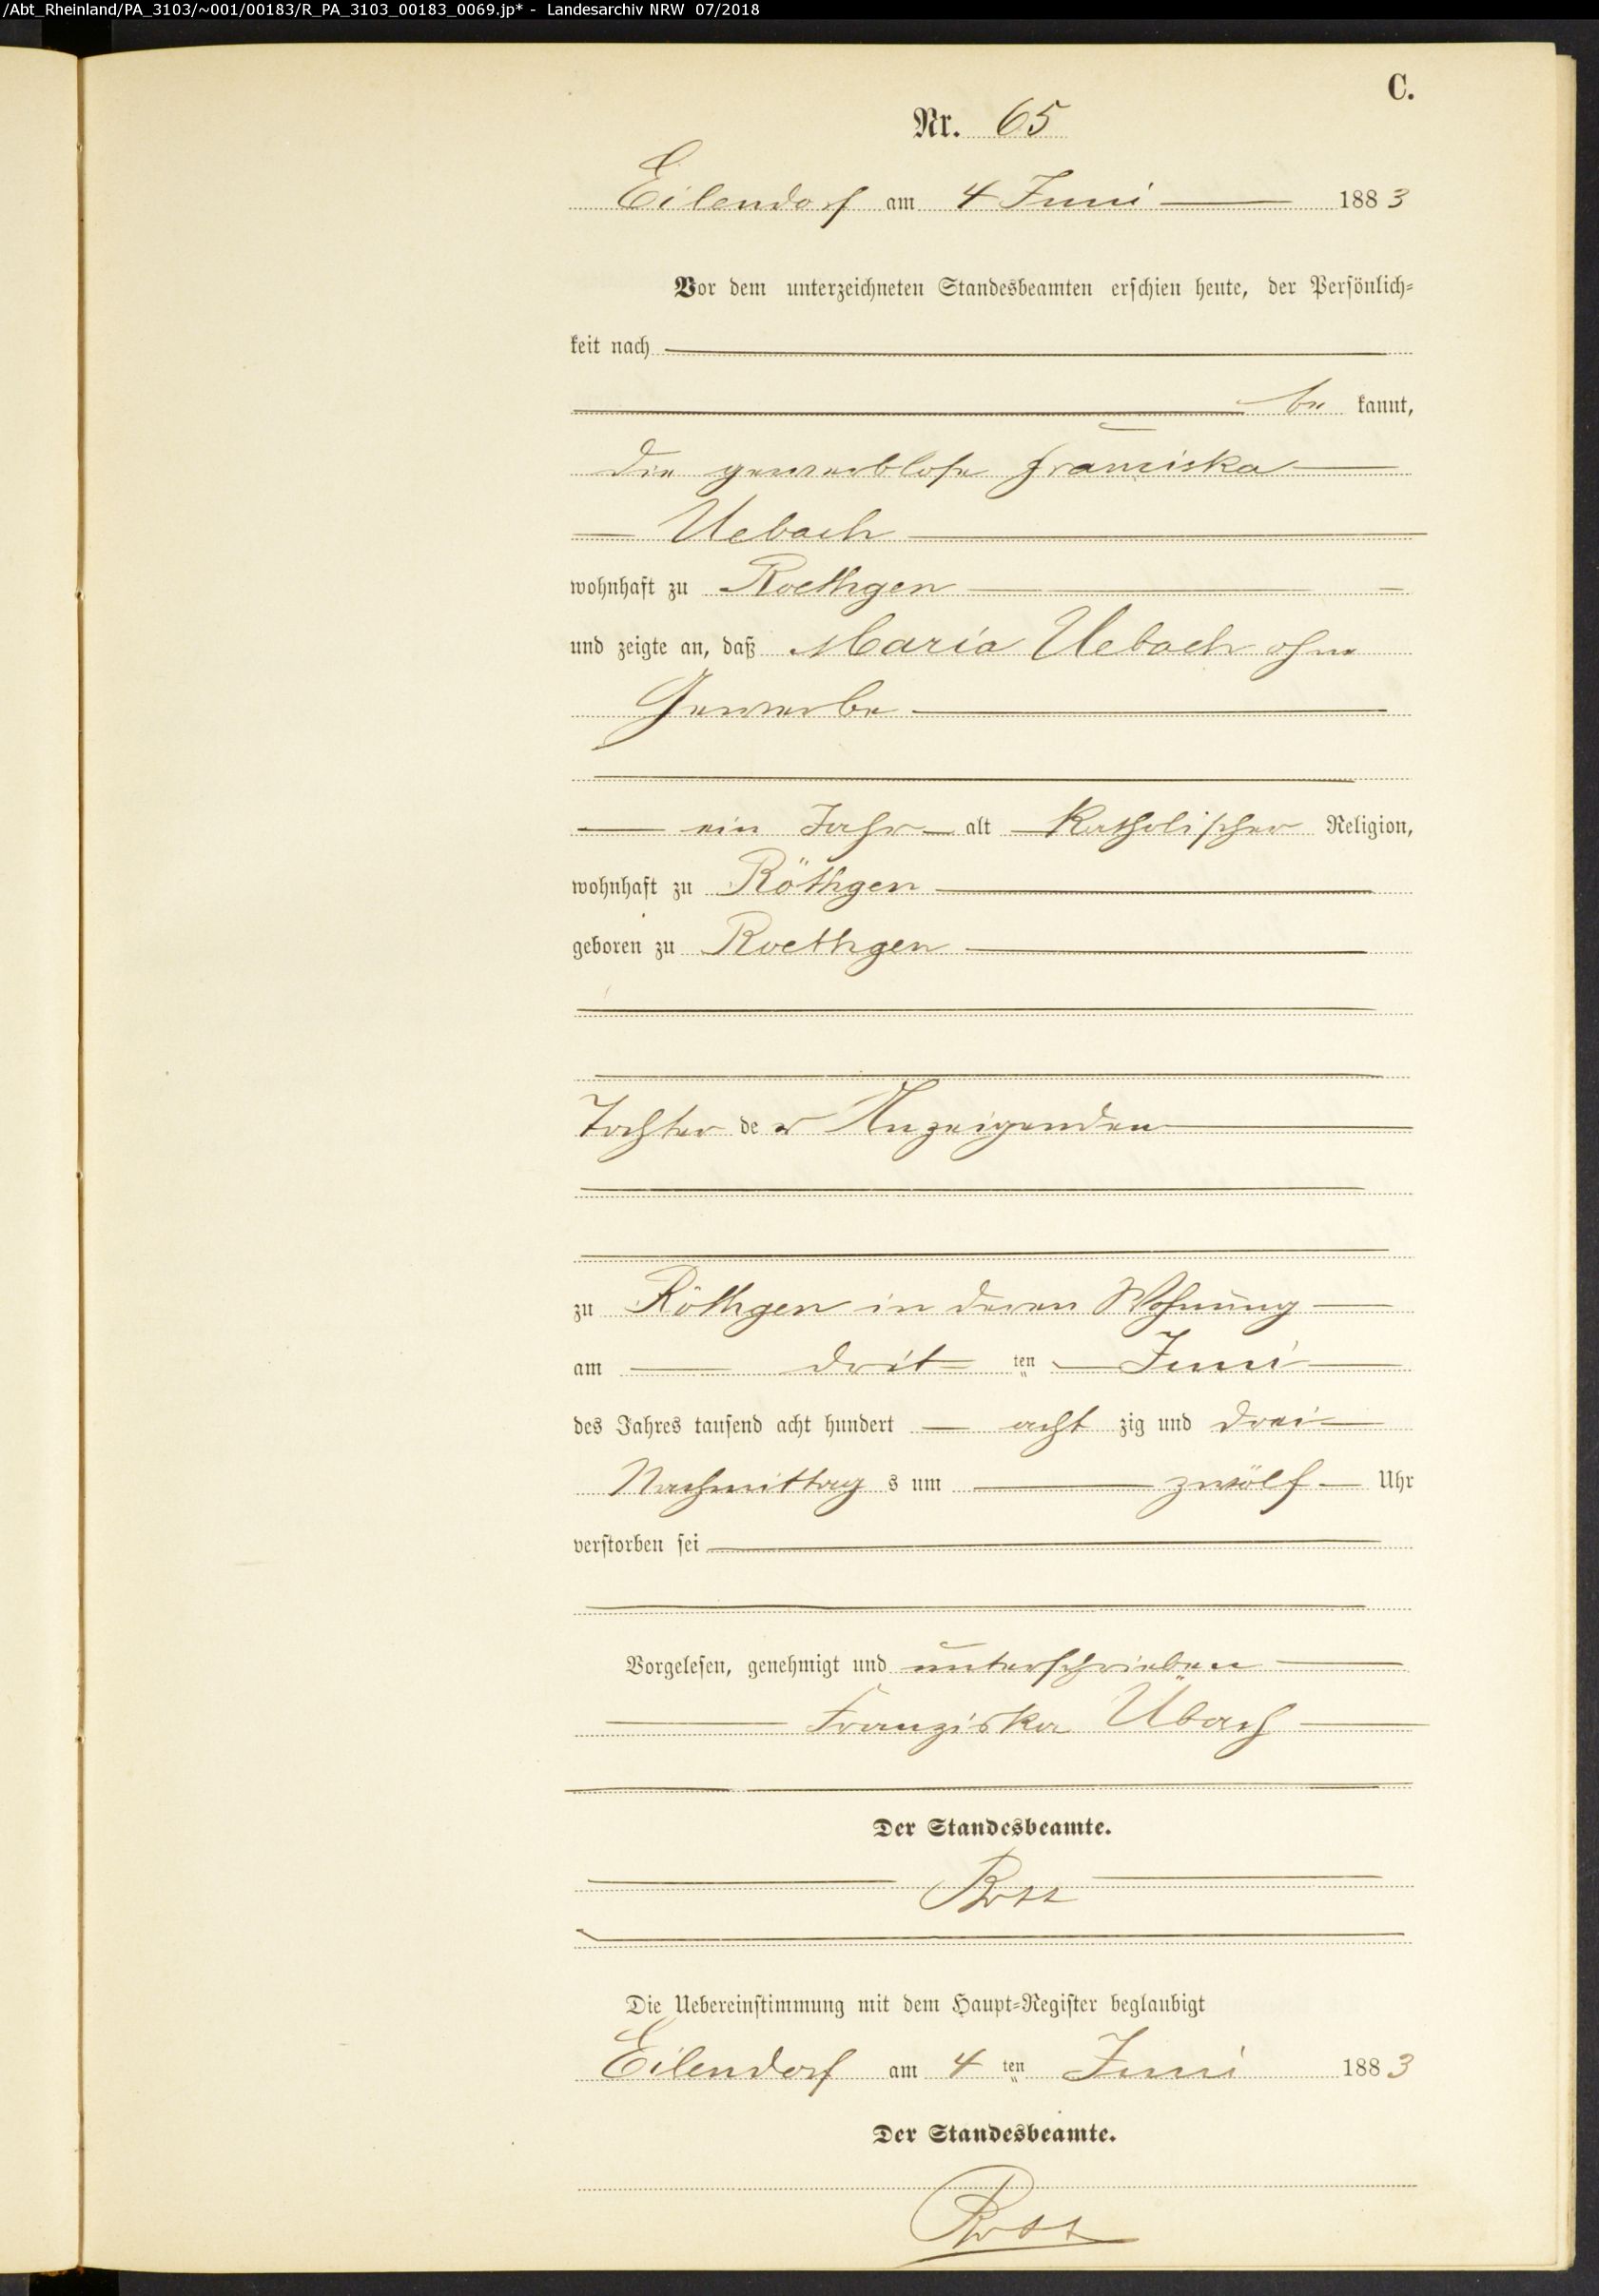 /Abt_Rheinland/PA_3103/~001/00183/R_PA_3103_00183_0069.jp* - Landesarchiv NRW 07/2018
C.
Nr. 65
Eilendorf am 4 Juni 1883
Vor dem unterzeichneten Standesbeamten erschien heute, der Persönlich=
keit nach
be kannt,
die gewerblose Franziska
Uebach
wohnhaft zu Roethgen
und zeigte an, daß Maria Uebach ohne
Gewerbe
ein Jahr alt Katholischer Religion,
wohnhaft zu Röthgen
geboren zu Roethgen
Tochter der Anzeigenden
zu Röthgen in deren Wohnung
am drit ten Juni
des Jahres tausend acht hundert acht zig und drei
Nachmittag s um zwölf Uhr
verstorben sei
Vorgelesen, genehmigt und unterschrieben
Franziska Übach
Der Standesbeamte.
Die Uebereinstimmung mit dem Haupt=Register beglaubigt
Eilendorf am 4 ten Juni 1883
Der Standesbeamte.